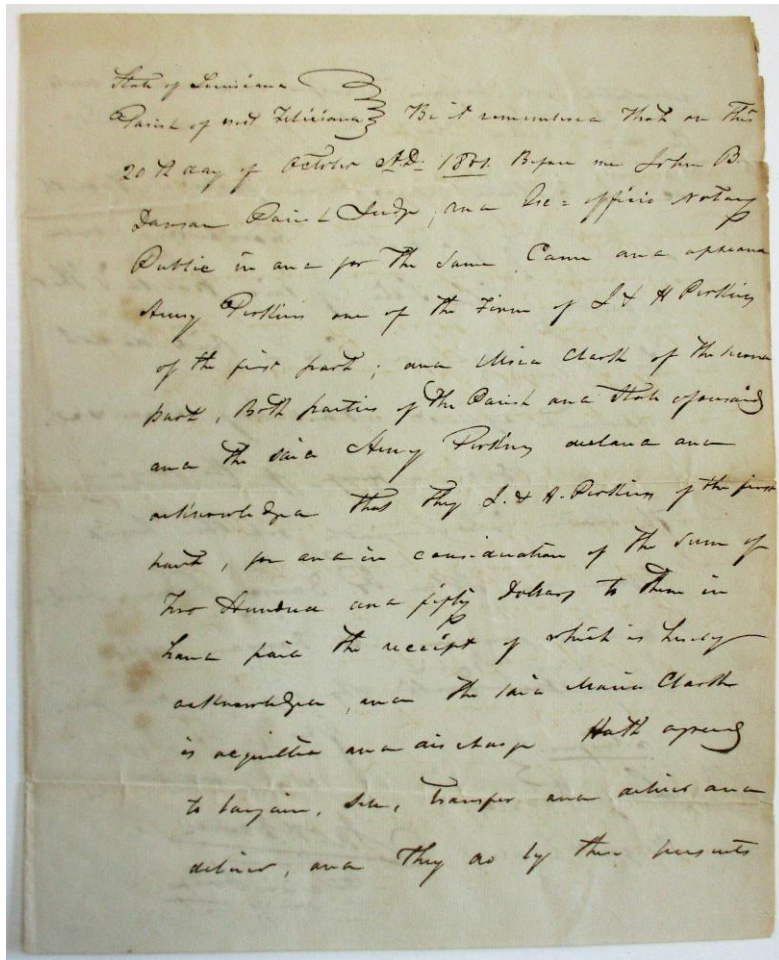 State of Louisiana
Parish of West Feliciana Be it remembered that on this
20th day of October A.D. Before me John B.
Dawson Parish Judge, and Ex-officio Notary
Public in and for the Same Came and appeared
Henry Perkins one of the Firm of J & H Perkins
of the first part; and Maria Clark of the second
part, Both parties of the Parish and State aforesaid
and the said Henry Perkins declared and
acknowledged that they J. & H. Perkins of the first
part, for and in consideration of the Sum of
Two Hundred and fifty Dollars to them in
hand paid the receipt of which is hereby
acknowledged, and the said Maria Clark
is acquitted and discharge Hath agreed
to bargain, Sell, Transfer and deliver and
deliver, and They do by these presents